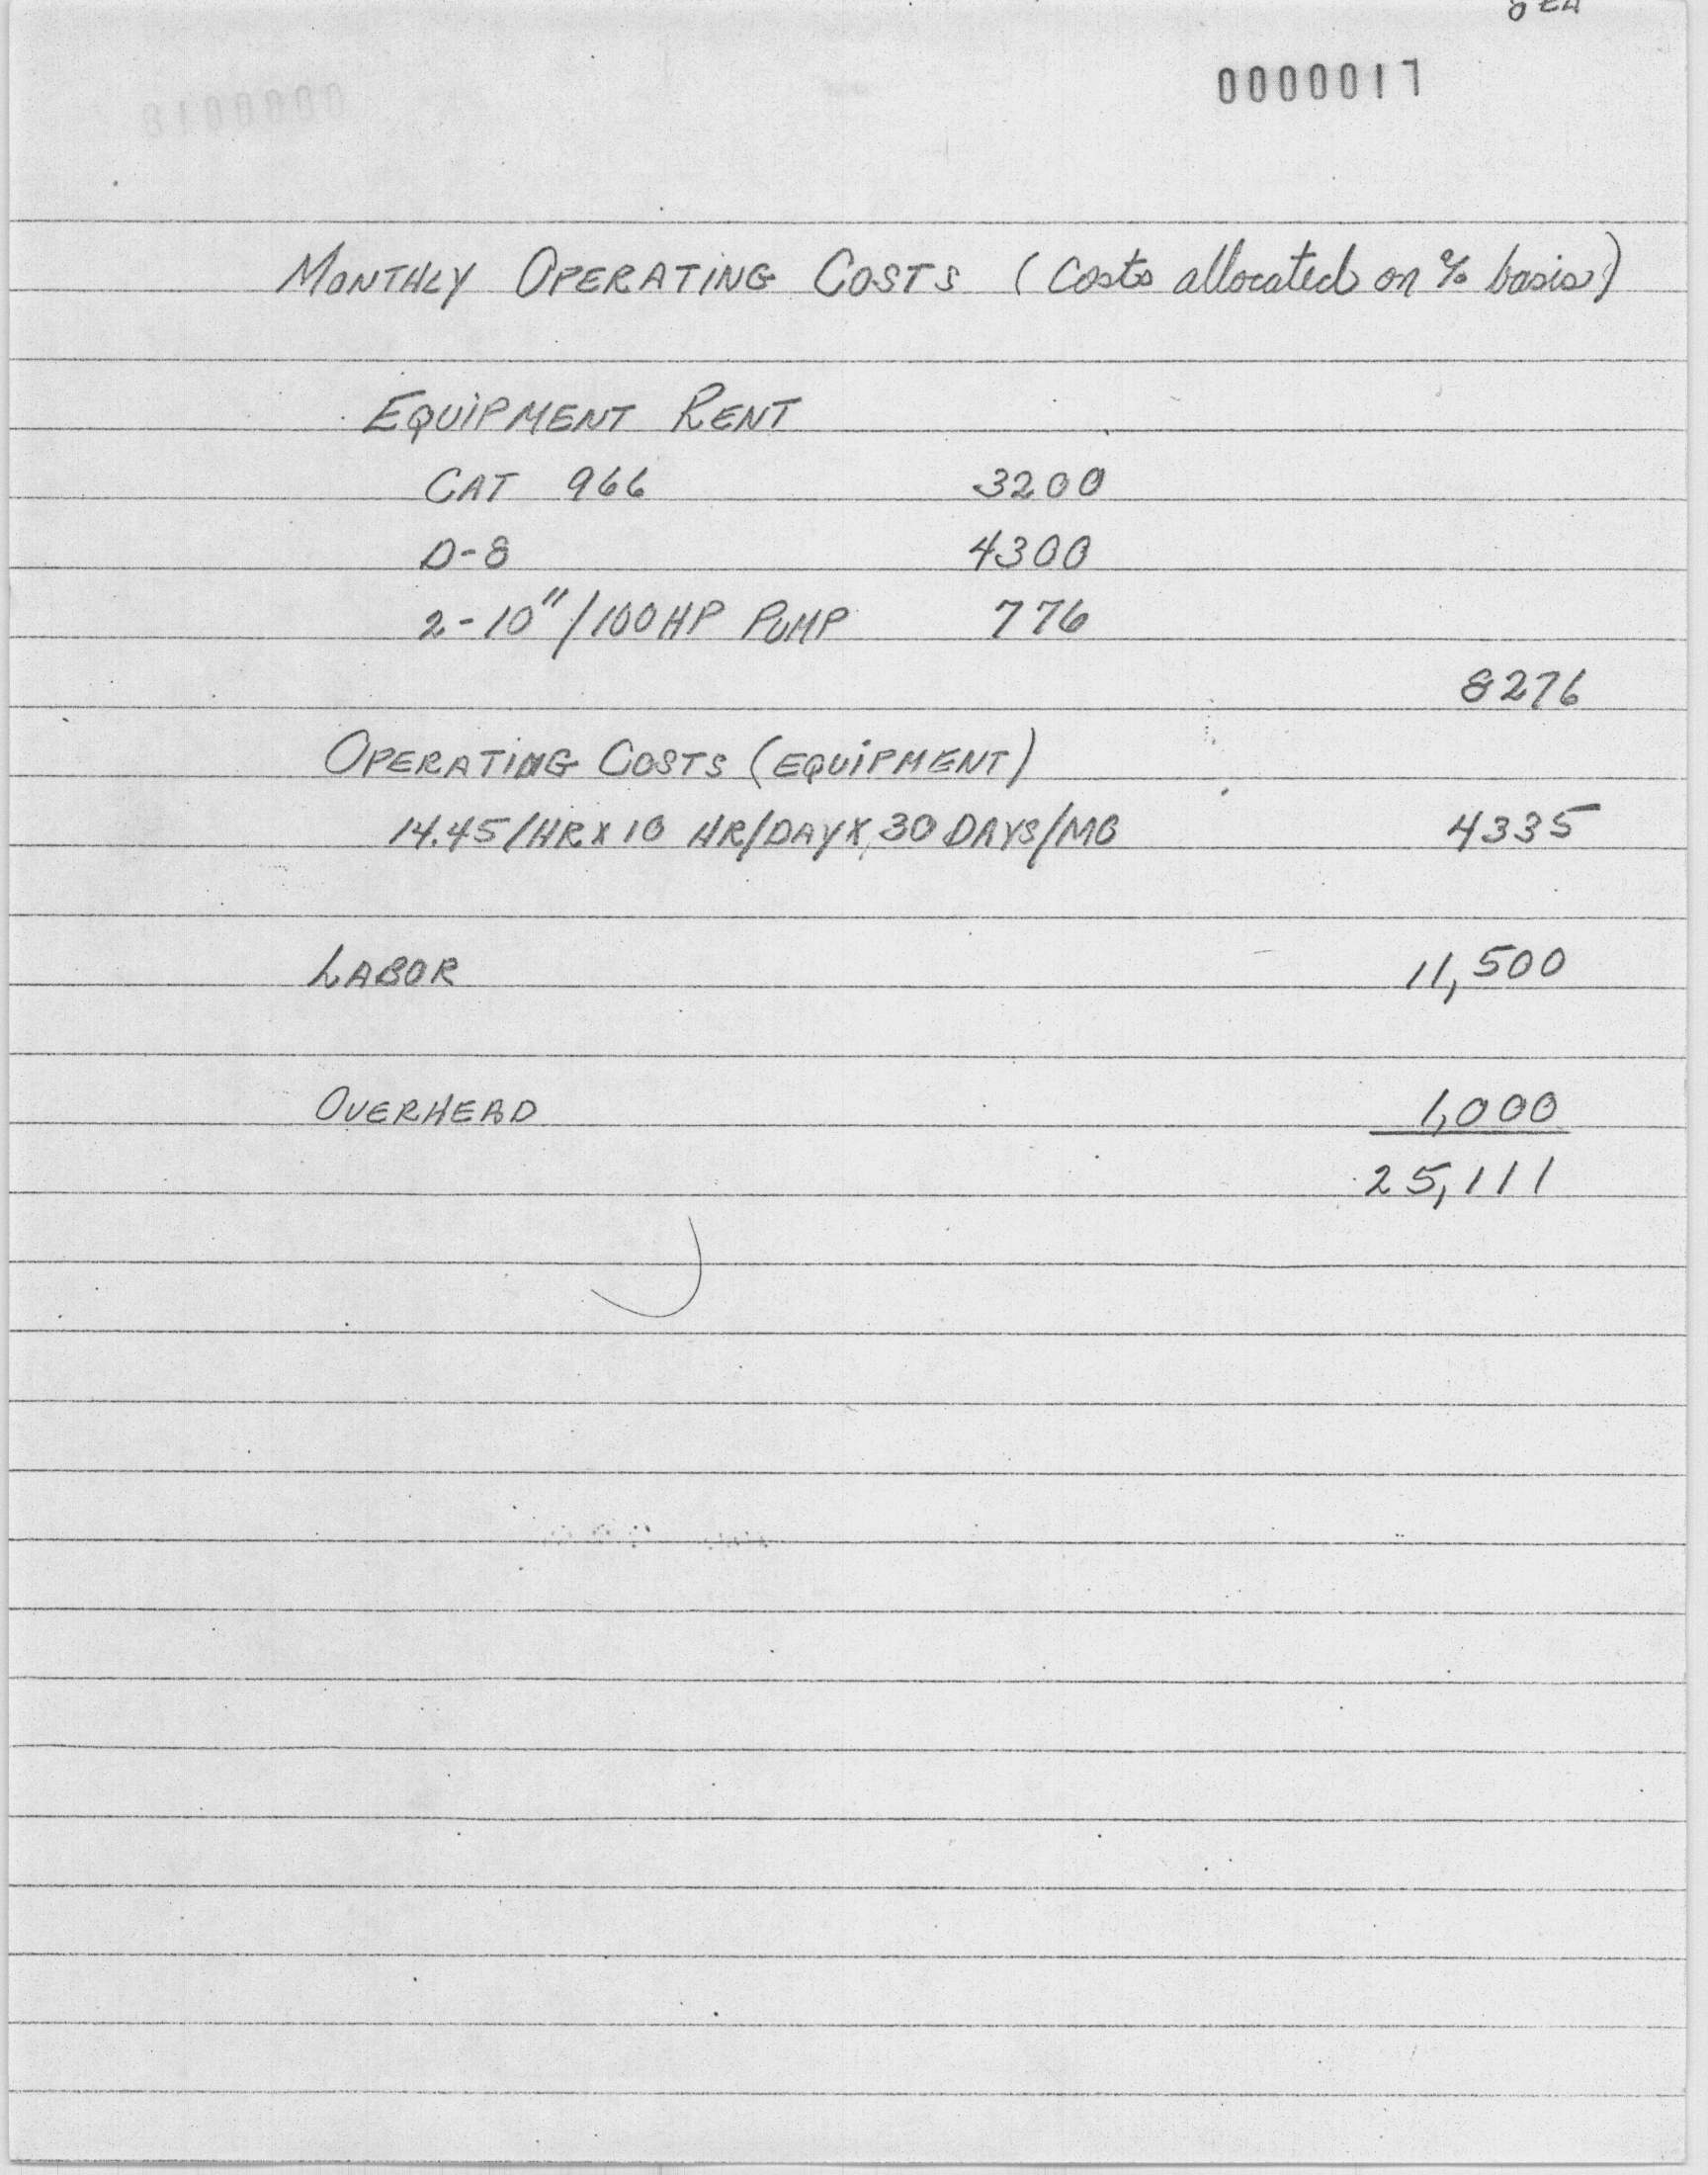 0000017
MONTHLY OPERATING COSTS (Costs allocated on % basis)
EQUIPMENT RENT
CAT 966 3200
D-8 4300
2-10"/100 HP PUMP 776
8276
OPERATING COSTS (EQUIPMENT)
14.45/HR X 10 HR/DAY X 30 DAYS/MO 4335
LABOR 11,500
OVERHEAD 1,000
25,111